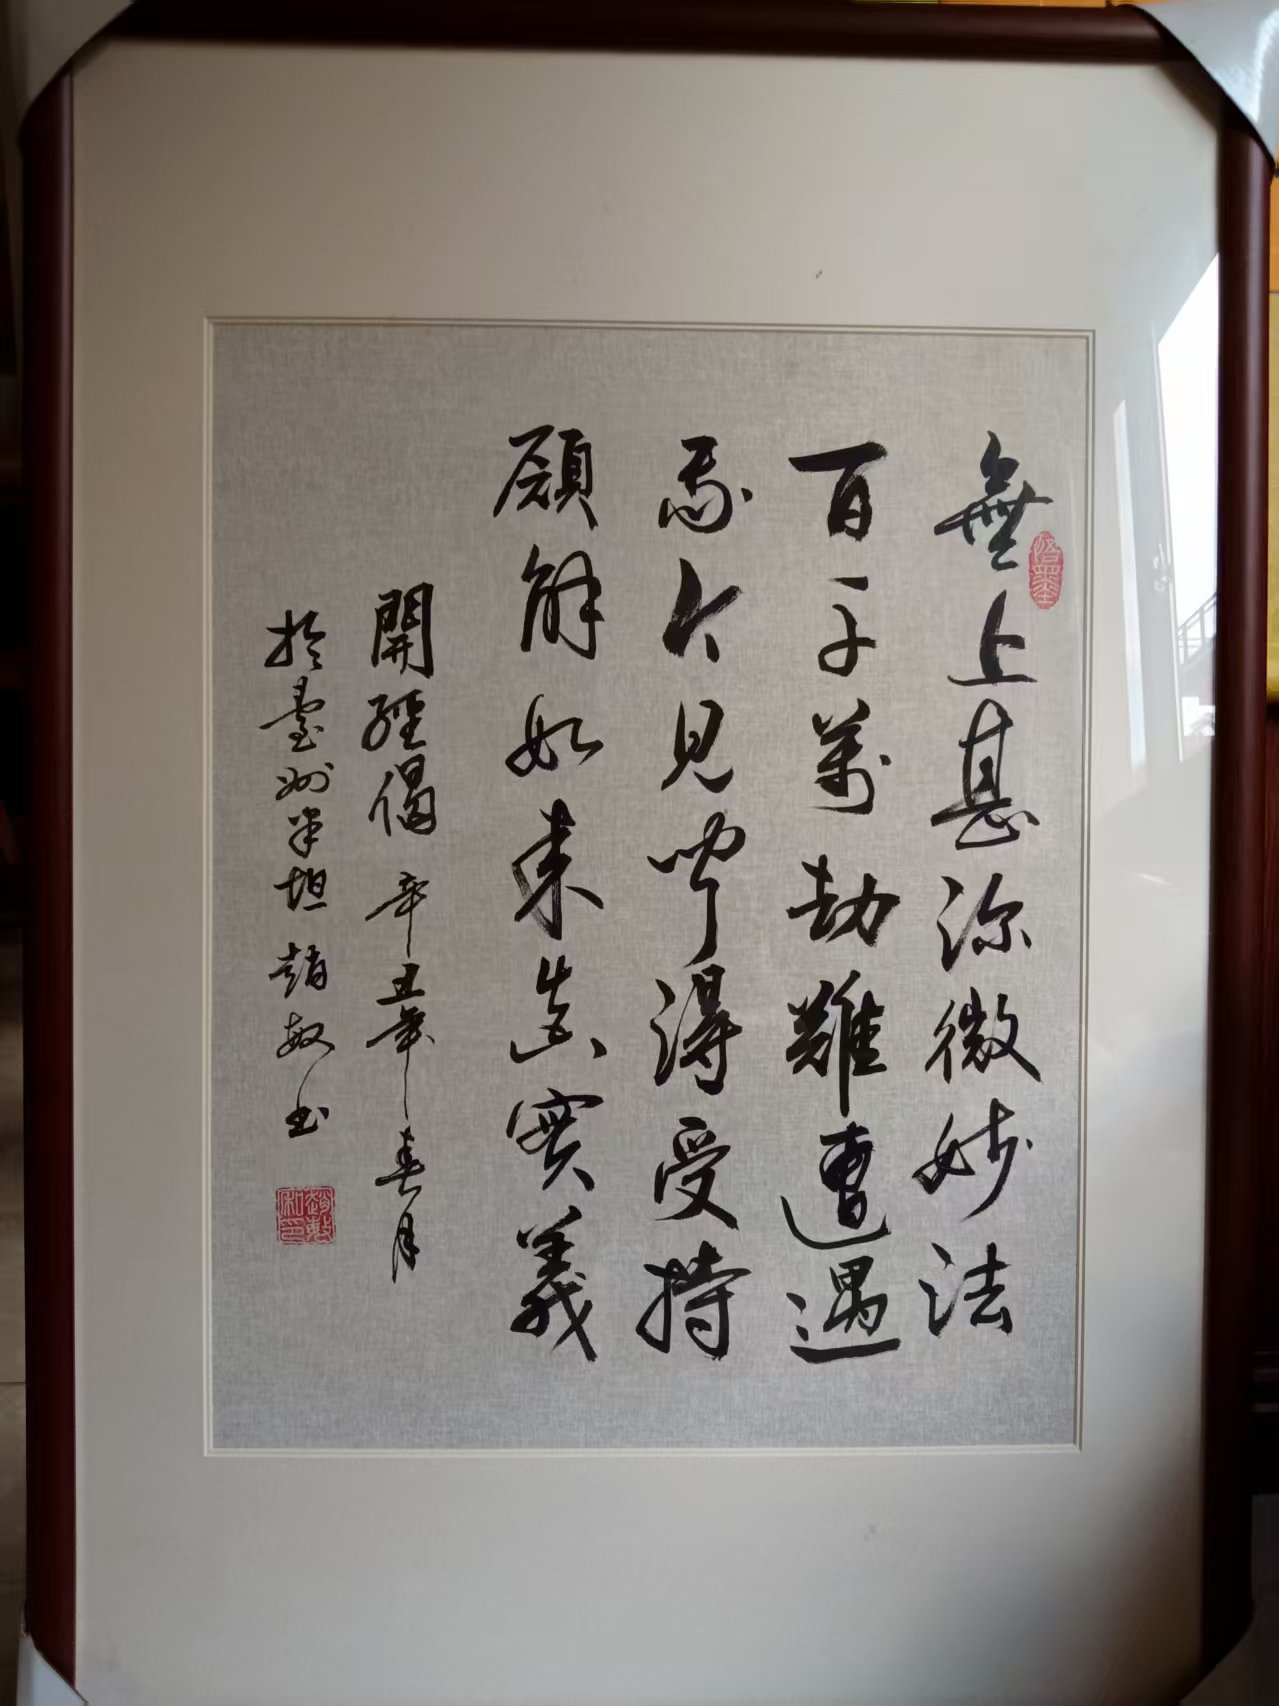 無上甚深微妙法
百千萬劫難遭遇
我今見聞得受持
願解如來真實義
開經偈 辛丑年春月
於臺州半坦趙敏書